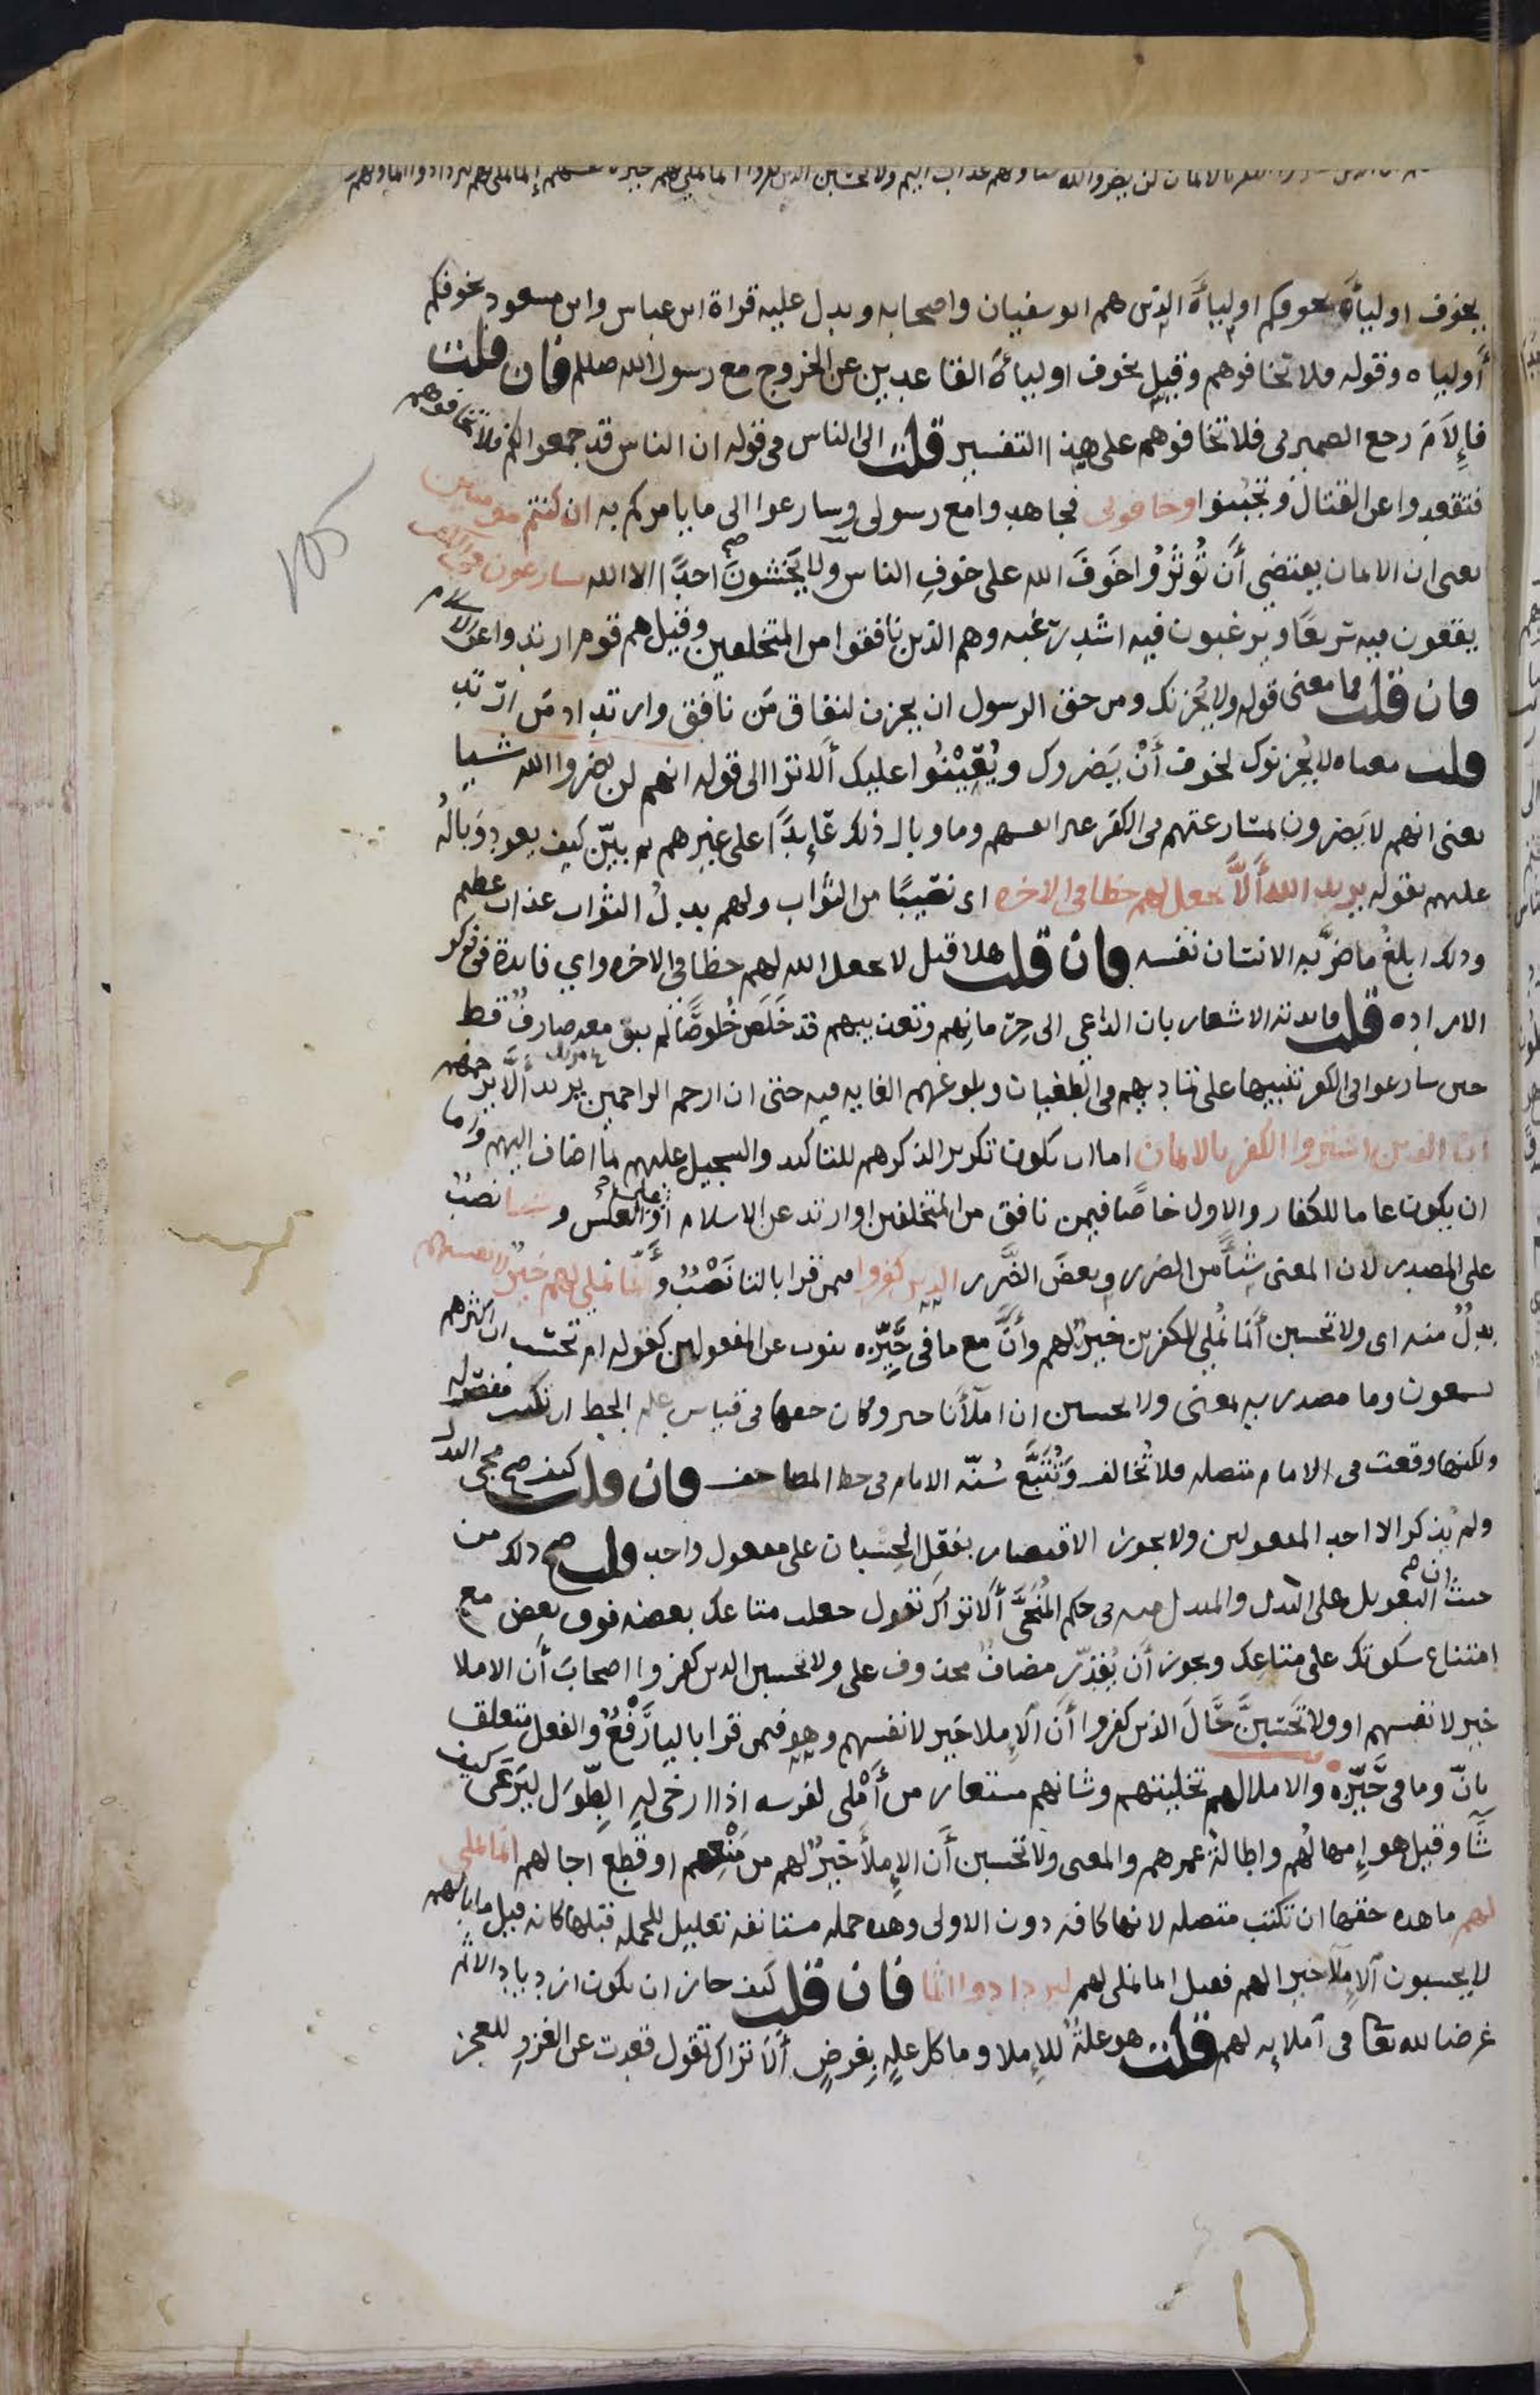 لن يضروا الله شيا ولهم عذاب اليم ولا تحسبن الذين كفروا انما نملي لهم خير لانفسهم انما نملي لهم ليزدادوا اثما ولهم
يخوف اولياءَه يخوفكم اولياءَه الذين هم ابو سفيان واصحابه ويدل عليه قراة ابن عباس وابن مسعود يخوفكم
أولياه وقوله ولا تخافوهم وقيل يخوف اولياءَه القاعدين عن الخروج مع رسول الله صللم فان قلت
فإلامَ رجع الضمير في فلا تخافوهم على هذا التفسير قلت الى الناس في قوله ان الناس قد جمعوا لكم فلا تخافوهم
فتقعدوا عن القتال وتجبُنوا وخافوني فجاهدوا مع رسولي وسارعوا الى ما يامركم به ان كنتم مومنين
يعني ان الايمان يقتضي أن تُوثرُوا خَوفَ الله على خوفِ الناس ولا يَخشَونَ احدًا الا الله يسارعون في الكفر
يقعون فيه سريعًا ويرغبون فيه اشد رغبه وهم الذين نافقوا من المتخلفين وقيل هم قوم ارتدوا عن الاسلام
فان قلت فما معنى قوله ولا يُحزنك ومن حق الرسول ان يحزن لنفاق مَن نافق وارتداد مَن ارتد
قلت معناه لا يُحزنوك لخوف أنْ يَضروك ويُعِيْنُوا عليك ألا ترا الى قوله انهم لن يضروا الله شيا
يعني انهم لا يَضرون بمسارعتهم في الكفر غير انفسهم وما وبال ذلك عَايدًا على غيرهم ثم بيّن كيف يعود وَبَالُه
عليهم بقوله يريد الله أَلَّا يجعل لهم حظا في الاخره اي نصيبًا من الثواب ولهم بدلُ الثواب عذاب عظيم
وذلك ابلغُ ما ضرَّ به الانسان نفسه فان قلت هلا قيل لا يجعل الله لهم حظا في الاخره واي فايدة في ذكر
الاراده قلت فايدته الاشعار بان الداعي الى حِرمانِهم وتعذيبهم قد خَلَصَ خُلوصًا لم يبق معه صارفٌ قط
حين سارعوا في الكفر تنبيها على تماديهم في الطغيان وبلوغهم الغايه فيه حتى ان ارحم الراحمين يريد ألّا يرحمهم
ان الذين اشتروا الكفر بالايمان اما ان يكون تكريرا لذكرهم للتاكيد والتسجيل عليهم بما اضاف اليهم واما
ان يكون عاما للكفار والاول خاصًا فيمن نافق من المتخلفين او ارتد عن الاسلام او على العكس و شيا نصبٌ
على المصدر لان المعنى شياً من الضرر وبعضَ الضَّرر الذين كفروا فيمن قرا بالتا نَصْبٌ و أَنَّما نملي لهم خيرٌ لانفسهم
بدلٌ منه اى ولا تحسبن أنما نُملي للكفرين خيرٌ لهم وأنَّ مع ما في حَيّزه ينوب عن المفعولين كقوله ام تحسب ان اكثرهم
يسمعون وما مصدريه بمعنى ولا تحسبن ان املآنا خير وكان حقها في قياس علم الخط ان تكتب مفصوله
ولكنها وقعت في الامام متصله فلا تُخالف وتُتَّبَع سُنّه الامام في خط المصاحف فان قلت كيف صح مجي البدل
ولم يُذكر الا احد المفعولين ولا يجوز الاقتصار بفعل الحِسبان على مفعول واحد قلت صح ذلك من
حيث ان التعويل على البدل والمبدل منه في حكم المُنَحَّى ألا تراك تقول جعلت متاعك بعضه فوق بعض مع
امتناع سكوتك على متاعك ويجوز أن يُقدّر مضافٌ محذوف على ولا تحسبن الذين كفروا اصحابَ أن الاملا
خير لانفسهم او ولا تَحسَبَنَّ حَالَ الذين كفروا أنَ الإملا خير لانفسهم وهو فيمن قرا باليا رَفْعٌ والفعل متعلق
بانّ وما في حَيّزه والاملا لهم تخليتهم وشانهم مستعار من أملَى لفرسه اذا ارخى له الطِّوَل ليَرعَى كيف
شَا وقيل هو إمهالُهم واطالة عمرهم والمعنى ولا تحسبن أن الإملأَ خيرٌ لهم من مَنْعِهم او قطع اجالهم انما نملي
لهم ما هذه حقها ان تكتب متصله لانها كافه دون الاولى وهذه جمله مستانفه تعليل للجمله قبلها كانه قيل ما بالهم
لا يحسبون الإملآ خيرا لهم فقيل انما نملي لهم ليزدادوا اثما فان قلت كيف جاز ان يكون ازدياد الاثم
غرضا لله تعا في املايه لهم قلت هو علةٌ للإملا وما كل علهٍ بغرضٍ ألا تراك تقول قعدت عن الغزو للعجز